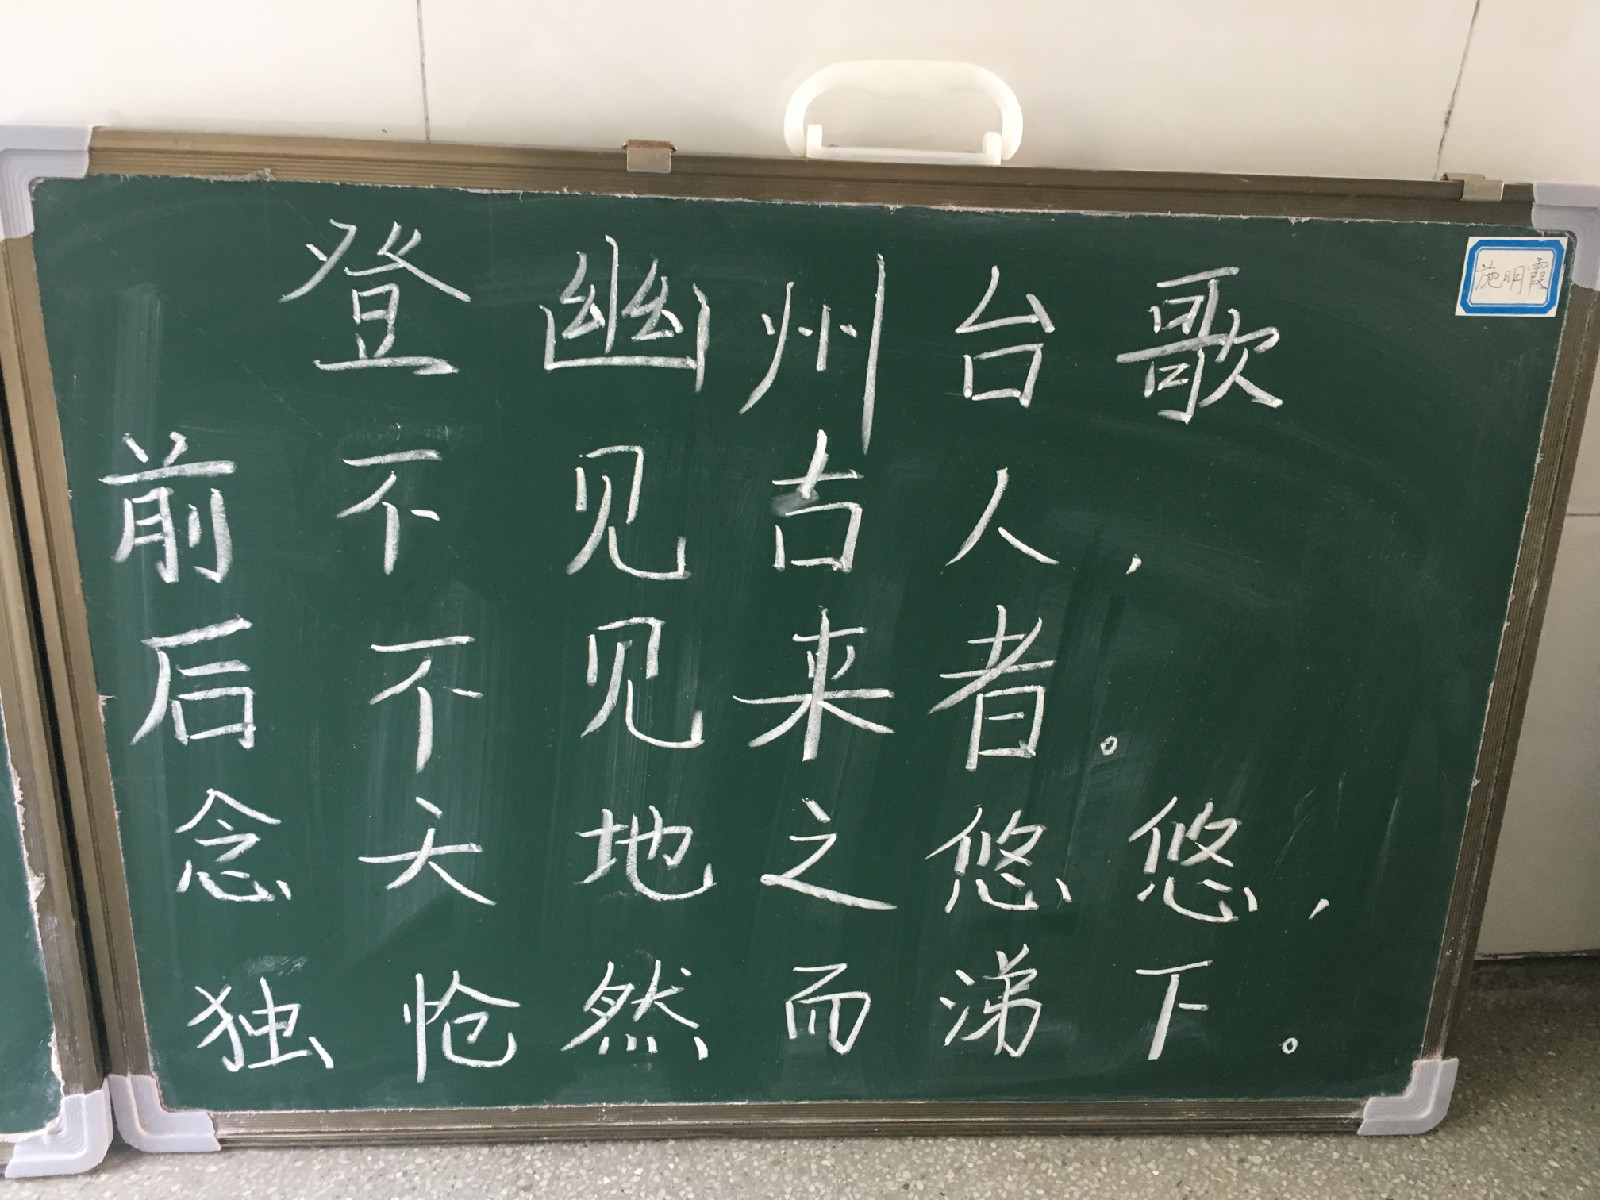 登幽州台歌
施明霞
前不见古人，
后不见来者。
念天地之悠悠，
独怆然而涕下。